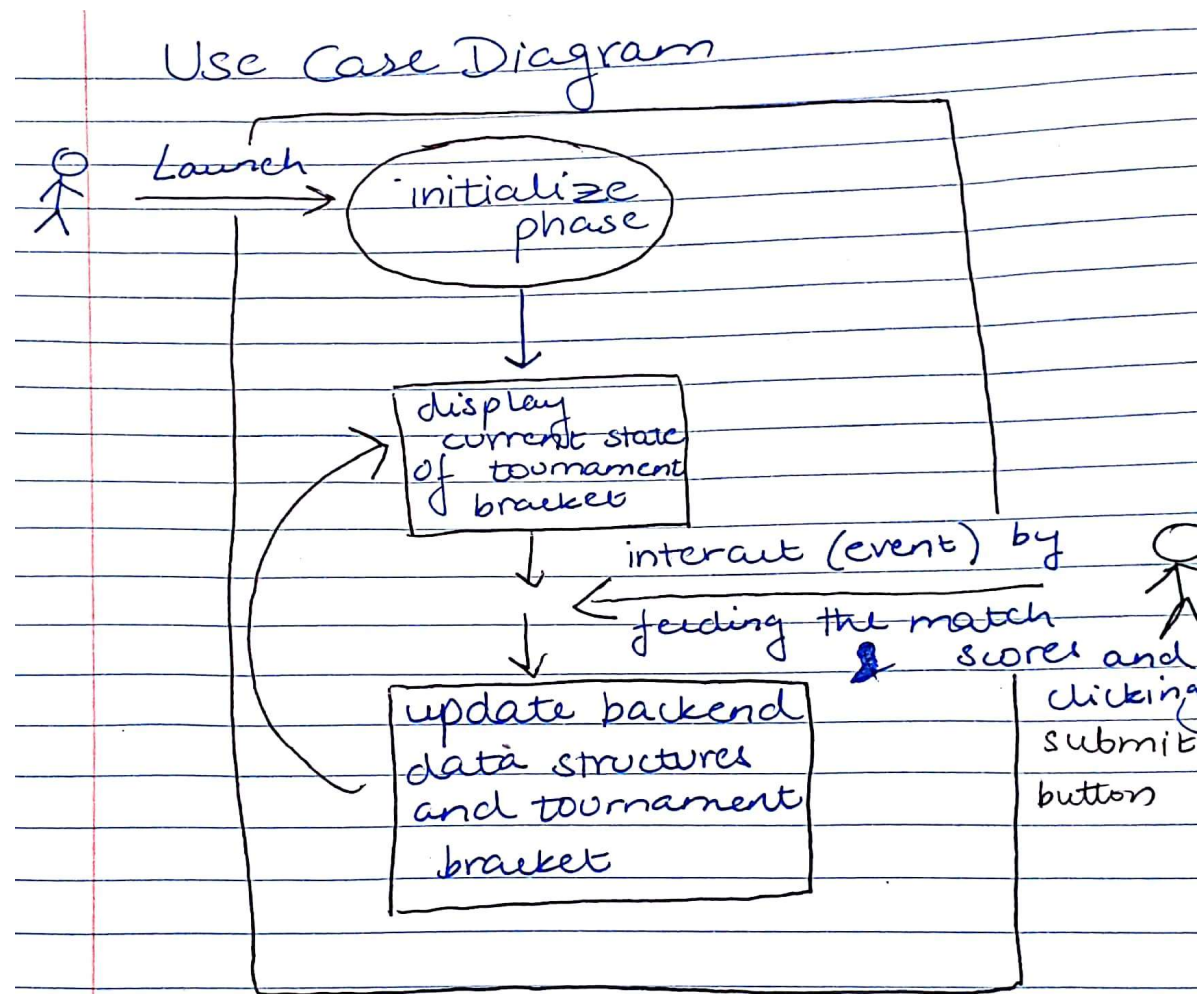 Use Case Diagram
Launch
initialize
phase
display
current state
of tournament
bracket
interact (event) by
feeding the match
scores and
clicking
submit
button
update backend
data structures
and tournament
bracket